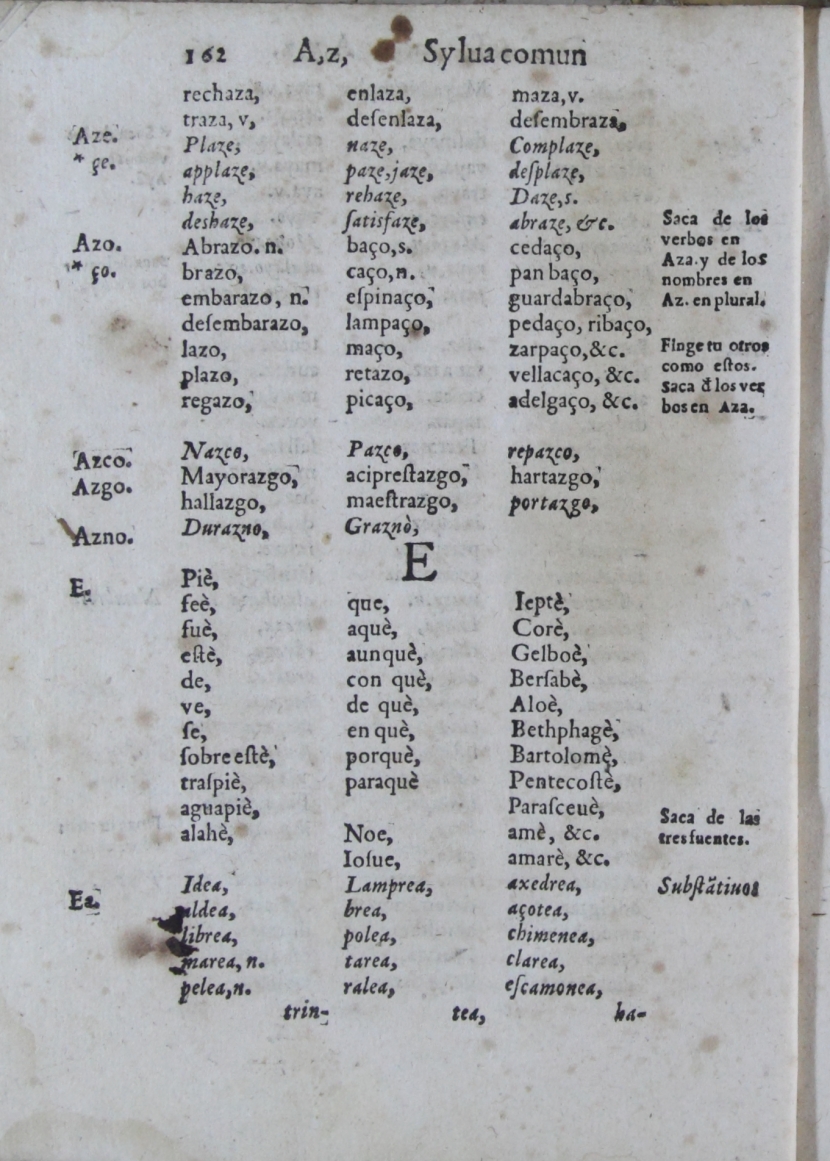 162 A,z, Sylua comun
rechaza, enlaza, maza, v.
traza, v, deſenlaza, deſembraza,
Aze. Plaze, naze, Complaze,
* çe. applaze, paze, jaze, deſplaze,
haze, rehaze, Daze, s.
deshaze, ſatisfaze, abraze, &c. Saca de los
Azo. Abrazo. n. baço, s. cedaço, verbos en
* ço. brazo, caço, n. pan baço, Aza. y de los
nombres en
embarazo, n. eſpinaço, guardabraço, Az. en plural.
deſembarazo, lampaço, pedaço, ribaço,
lazo, maço, zarpaço, &c. Finge tu otros
como eſtos.
plazo, retazo, vellacaço, &c. Saca d̃ los ver
regazo, picaço, adelgaço, &c. bos en Aza.
Azco. Nazco, Pazco, repazco,
Azgo. Mayorazgo, acipreſtazgo, hartazgo,
hallazgo, maeſtrazgo, portazgo,
Azno. Durazno, Graznò,
E
E. Piè,
feè, que, Ieptè,
fuè, aquè, Corè,
eſtè, aunquè, Gelboè,
de, con què, Berſabè,
ve, de què, Aloè,
ſe, en què, Bethphagè,
ſobre eſtè, porquè, Bartolomè,
traſpiè, paraquè Pentecoſtè,
aguapiè, Paraſceuè, Saca de las
alahè, Noe, amè, &c. tres fuentes.
Ioſue, amarè, &c.
Ea. Idea, Lamprea, axedrea, Subſtãtiuos
aldea, brea, açotea,
librea, polea, chimenea,
marea, n. tarea, clarea,
pelea, n. ralea, eſcamonea,
trin- tea, ha-